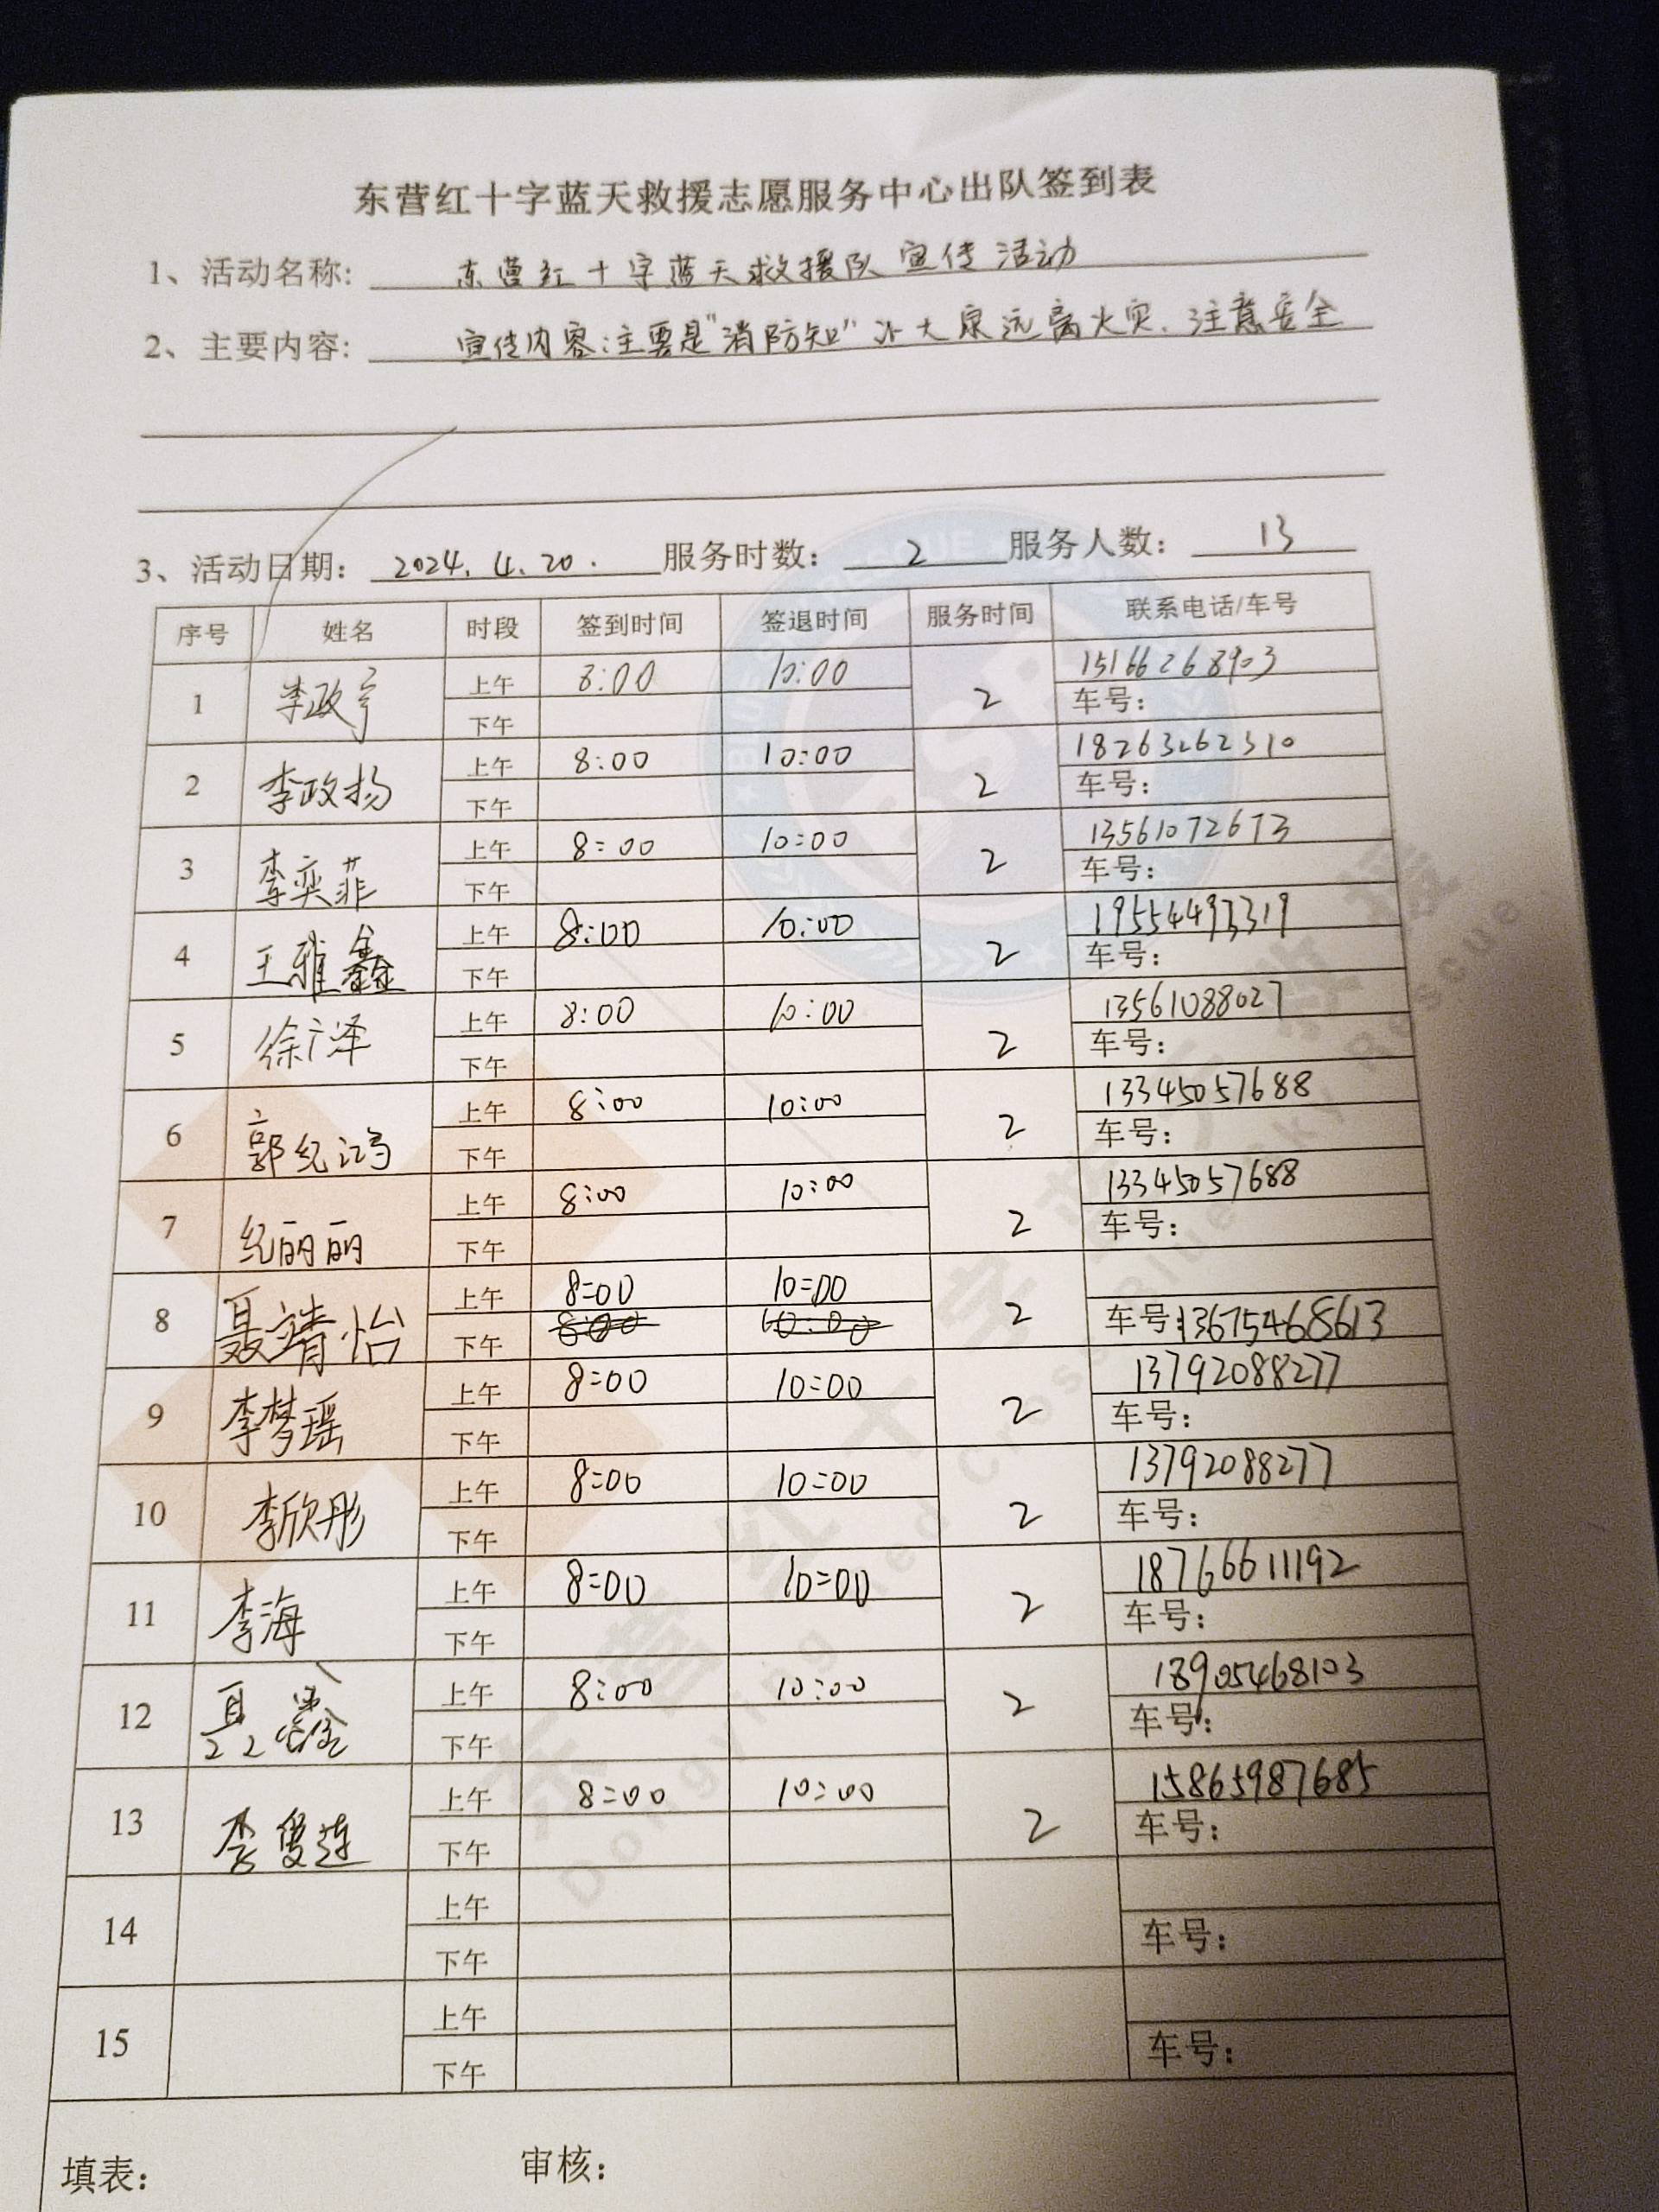 东营红十字蓝天救援志愿服务中心出队签到表
1、活动名称: 东营红十字蓝天救援队宣传活动
2、主要内容: 宣传内容:主要是"消防知" 大家远离火灾.注意安全
3、活动日期: 2024.4.20. 服务时数: 2 服务人数: 13
序号 姓名 时段 签到时间 签退时间 服务时间 联系电话/车号
1 李政宇 上午 8:00 10:00 2 15166268903
下午 车号:
2 李政扬 上午 8:00 10:00 2 18263262310
下午 车号:
3 李奕菲 上午 8:00 10:00 2 13561072673
下午 车号:
4 王雅鑫 上午 8:00 10:00 2 19554493319
下午 车号:
5 徐广泽 上午 8:00 10:00 2 13561088027
下午 车号:
6 郭纪鸿 上午 8:00 10:00 2 13345057688
下午 车号:
7 纪丽丽 上午 8:00 10:00 2 13345057688
下午 车号:
8 聂靖怡 上午 8:00 10:00 2
下午 8:00 10:00 车号:13675468613
9 李梦瑶 上午 8:00 10:00 2 13792088277
下午 车号:
10 李欣彤 上午 8:00 10:00 2 13792088277
下午 车号:
11 李海 上午 8:00 10:00 2 18766611192
下午 车号:
12 聂鑫 上午 8:00 10:00 2 18905468103
下午 车号:
13 李 连 上午 8:00 10:00 2 15865987685
下午 车号:
14 上午
下午 车号:
15 上午
下午 车号:
填表: 审核:
东营红十字蓝天救援
Dongying Red Cross Blue Sky Rescue